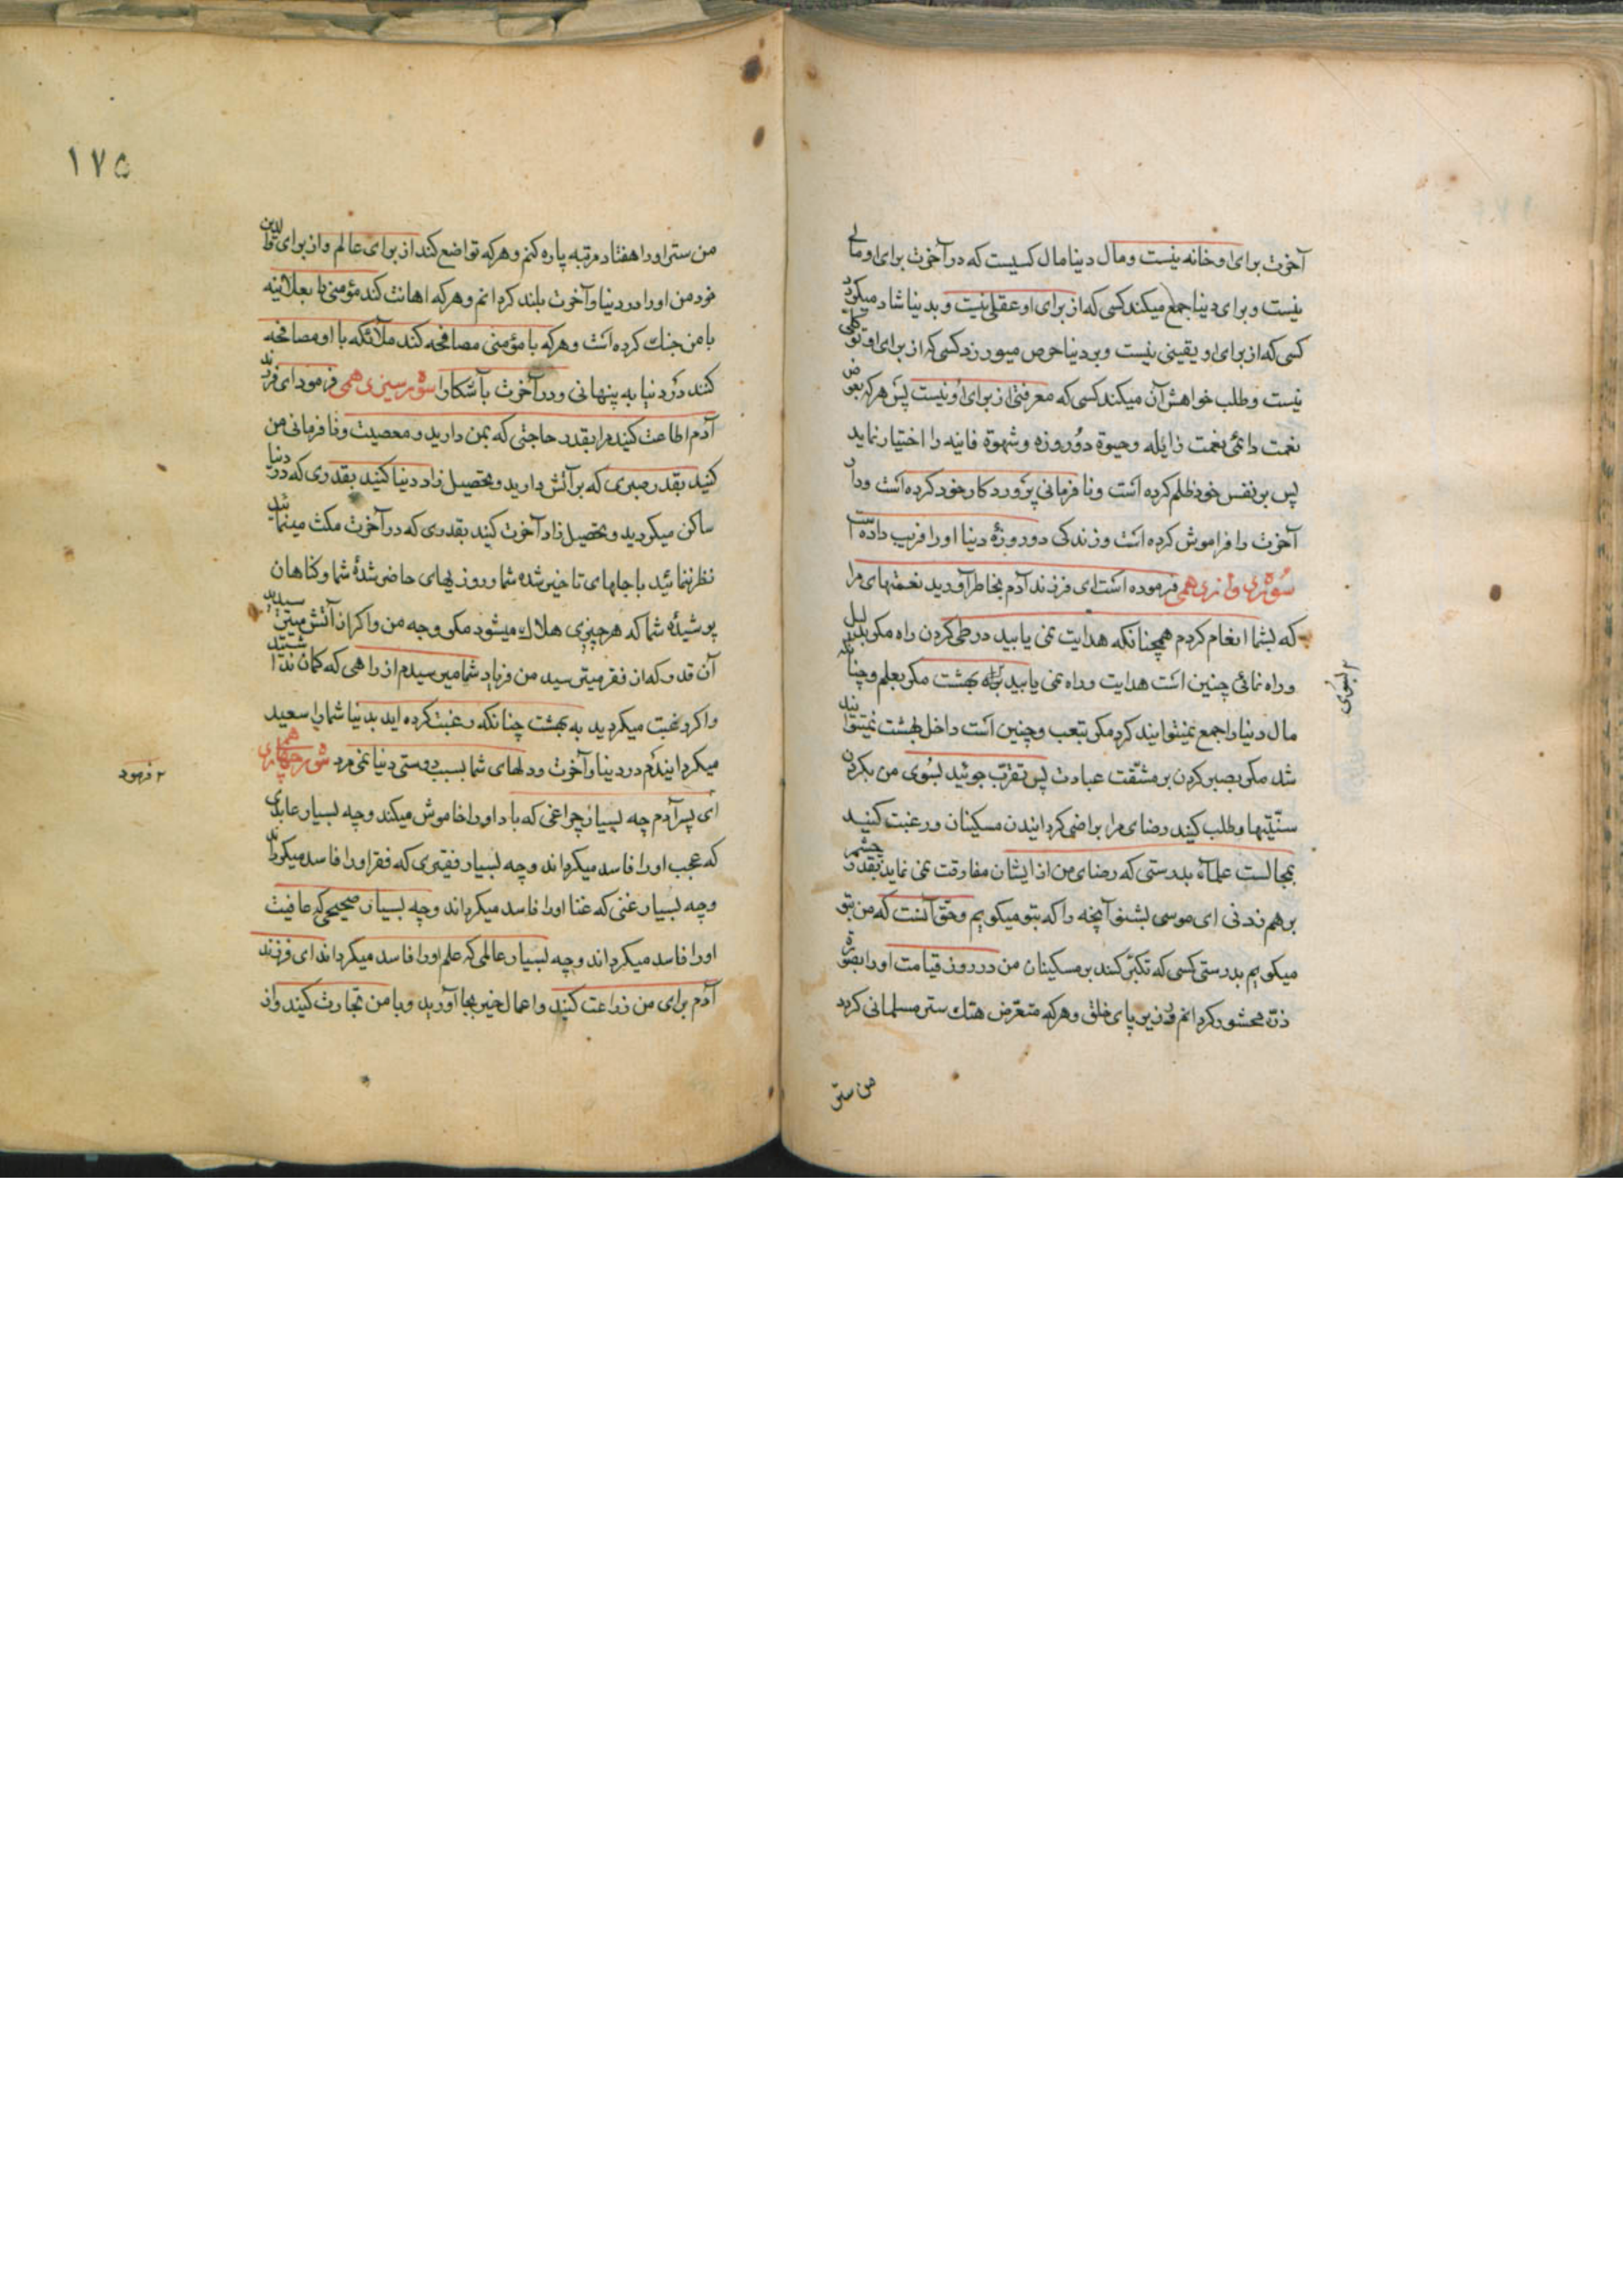 آخرت برای او خانه نیست و مال دنیا مال کسیست که در آخرت برای او مالی
نیست و برای دنیا جمع میکند کسی که از برای او عقلی نیست و بدنیا شاد میکردد
کسی که از برای او یقینی نیست و بر دنیا حرص میورزد کسی که از برای او توکلی
نیست و طلب خواهش آن میکند کسی که معرفتی از برای او نیست پس هر که بعوض
نعمت دائمی نعمت زایله و حیوة دو روزه و شهوة فانیه را اختیار نماید
پس بر نفس خود ظلم کرده است و نا فرمانی پرورد کار خود کرده است و دار
آخرت را فراموش کرده است و زندکی دو روزۀ دنیا او را فریب داده است
سوره دوازدهمی فرموده است ای فرزند آدم بخاطر آورید نعمتهای مرا
که بشما انعام کردم همچنانکه هدایت نمی یابید در طی کردن راه مکر بدلیل
و راه نمائی چنین است هدایت و راه نمی یابید براه بهشت مکر بعلم و چنانکه
مال دنیا را جمع نمیتوانید کرد مکر بتعب و چنین است داخل بهشت نمیتوانید
شد مکر بصبر کردن بر مشقت عبادت پس تقرب جوئید بسوی من بکردن
سنتیها و طلب کنید رضای مرا براضی کردانیدن مسکینان و رغبت کنید
بمجالست علمآء بدرستی که رضای من از ایشان مفارقت نمی نماید بقدر چشم
بر هم زدنی ای موسی بشنو آنچه را که بتو میکویم و حق آنست که من بتو
میکویم بدرستی کسی که تکبر کند بر مسکینان من در روز قیامت او را بصورة
ذره محشور کردانم در زیر پای خلق و هر که متعرض هتك ستر مسلمانی کردد
من ستر
١٧٥
من ستر او را هفتاد مرتبه پاره کنم و هر که تواضع کند از برای عالم و از برای والدین
خود من او را در دنیا و آخرت بلند کردانم و هر که اهانت کند مؤمنی را بعلانیه
با من جنك کرده است و هر که با مؤمنی مصافحه کند ملآئکه با او مصافحه
کنند در دنیا به پنهانی و در آخرت بآشکارا سوره سیزدهمی فرمود ای فرزند
آدم اطاعت کنید مرا بقدر حاجتی که بمن دارید و معصیت و نا فرمانی من
کنید بقدر صبری که بر آتش دارید و تحصیل زاد دنیا کنید بقدری که در دنیا
ساکن میکردید و تحصیل زاد آخرت کنید بقدری که در آخرت مکث مینمائید
نظر ننمائید باجلهای تاخیر شده شما و روزیهای حاضر شدۀ شما و کناهان
پوشیدۀ شما که هر چیزی هلاك میشود مکر وجه من و اکر از آتش میترسیدید
آن قدر که از فقر میترسید من فریاد شما میرسیدم از راهی که کمان نداشتید
و اکر رغبت میکردید به بهشت چنانکه رغبت کرده اید بدنیا شما را سعید
میکردانیدم در دنیا و آخرت و دلهای شما بسبب دوستی دنیا نمی مرد سوره چهاردهمی
ای پسر آدم چه بسیار چراغی که باد او را خاموش میکند و چه بسیار عابدی
که عجب او را فاسد میکرداند و چه بسیار فقیری که فقر او را فاسد میکرداند
و چه بسیار غنی که غنا او را فاسد میکرداند و چه بسیار صحیحی که عافیت
او را فاسد میکرداند و چه بسیار عالمی که علم او را فاسد میکرداند ای فرزند
آدم برای من زراعت کنید و اعمال خیر بجا آورید و با من تجارت کنید و از
۲ فرمود